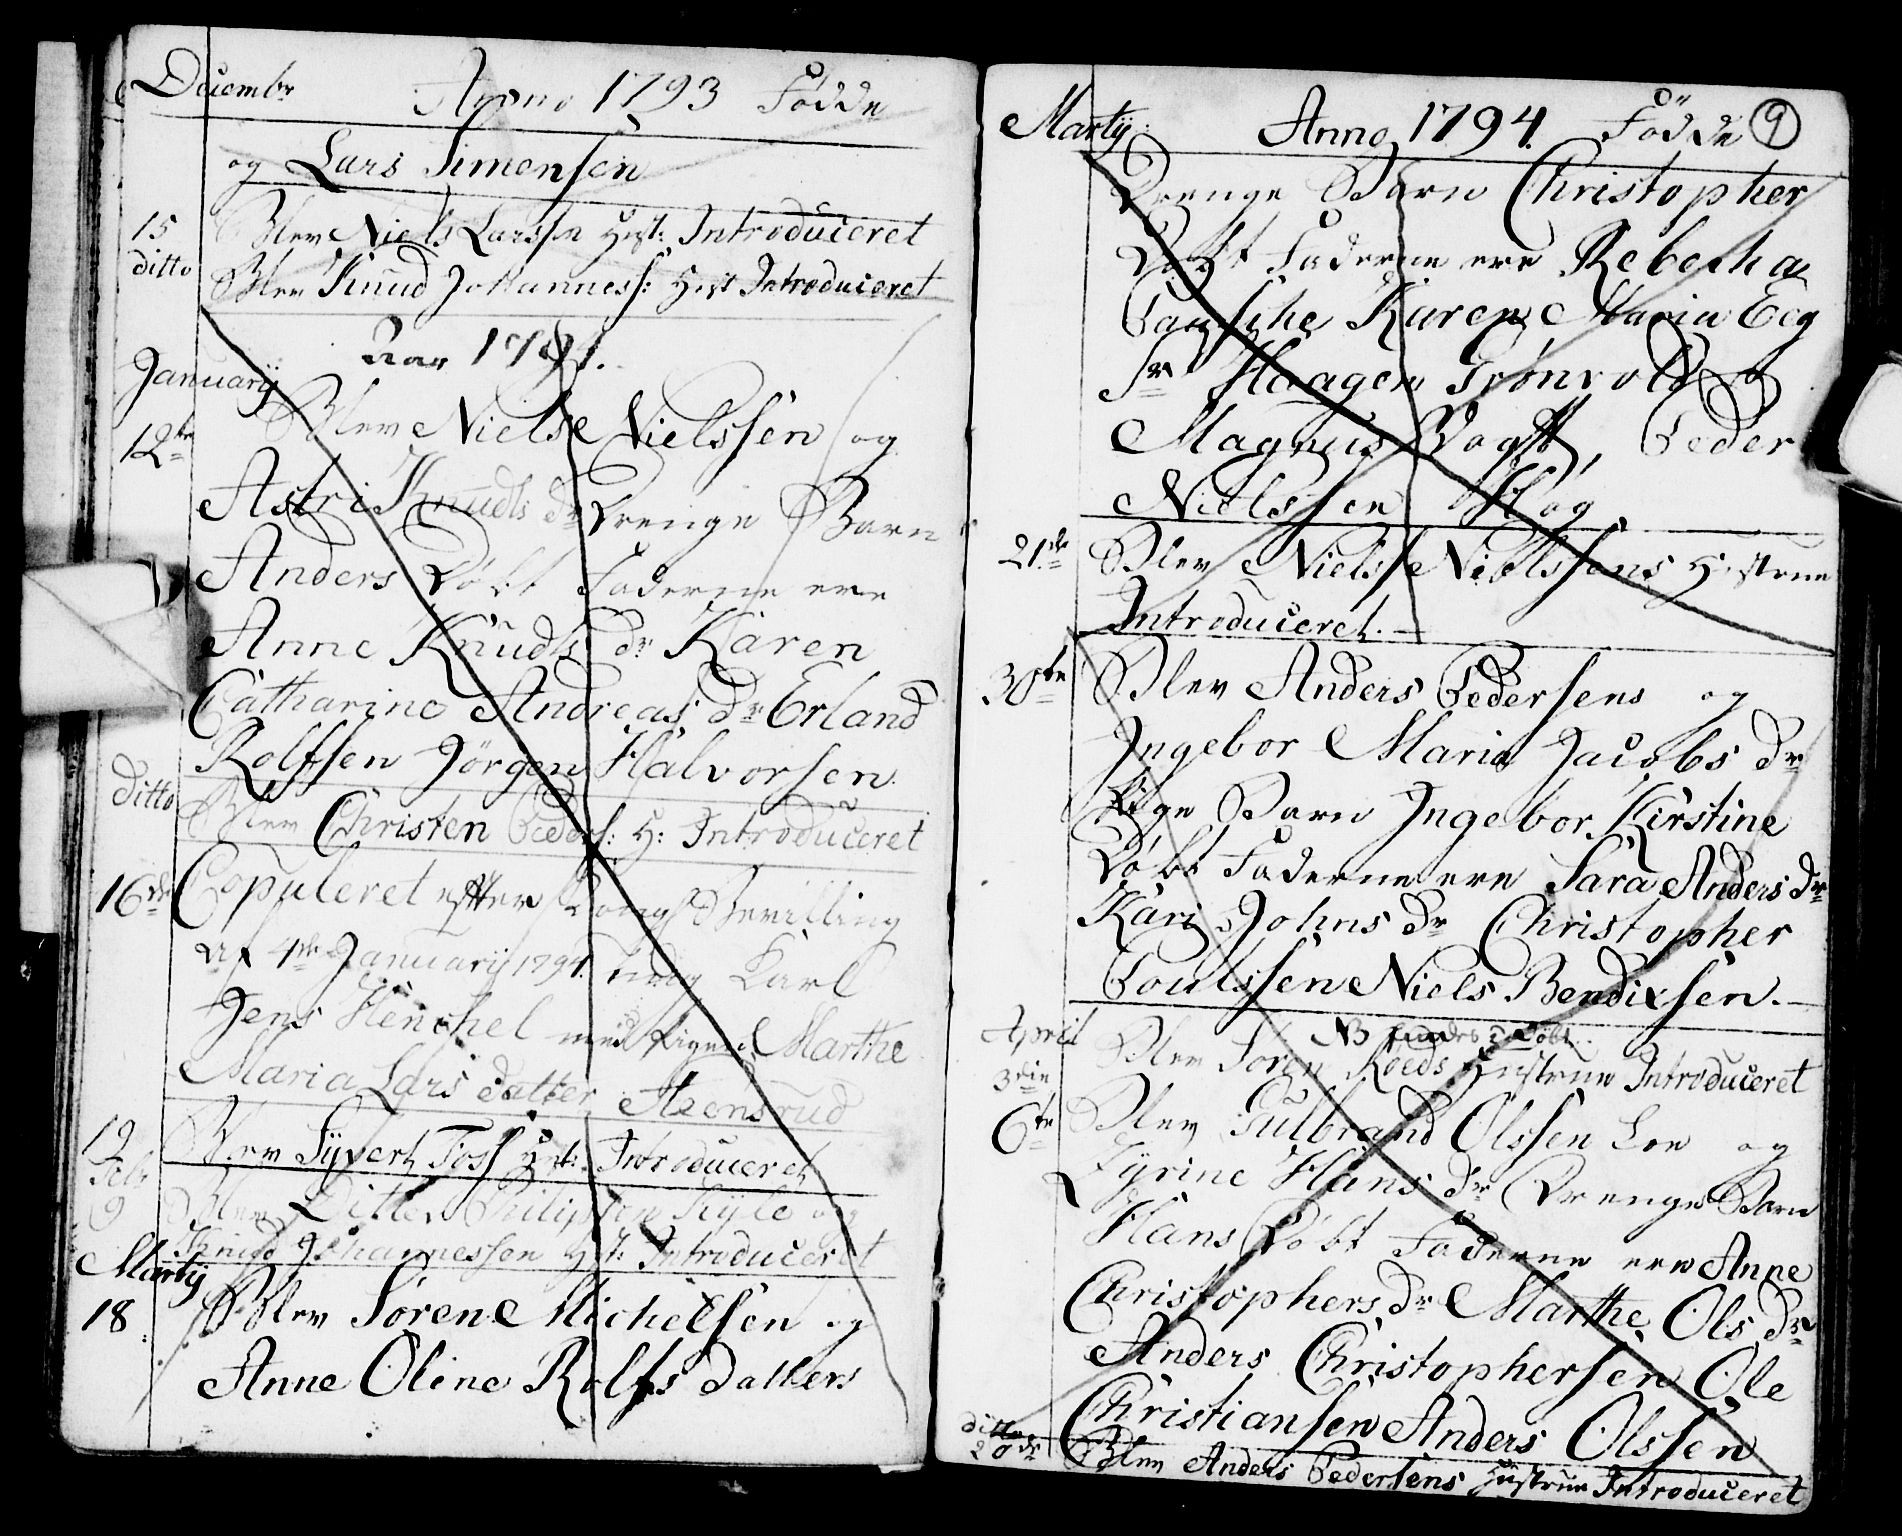 Decembr Anno 1793 Födde
og Lars Simensen
15 Blev Niels Larssen Hust: Introduceret
ditto Blev Knud Johanness: Hust Introduceret
Aar 1794.
Januarij
12te Blev Niels Nielssen og
Astri Knuds dr Drenge Barn
Anders Døbt Faderne ere
Anne Knuds dr Karen
Catharine Andreas dr Erland
Rolfsen Jörgen Halvorsen
Ditto Blev Christen Peders: H: Introduceret
16de Copuleret efter Kongs Bevilling
af 4de Januarij 1794. ung Karl
Jens Henchel med Pigen Marthe
Maria Lars datter
19 Blev Syvert Foss Hust: Introduceret
Feb
9 Blev Ditlev Philipsen og
Knud Johannessen Hst: Introduceret
Martij
18 Blev Søren Michelsen og
Anne Oline Rolfs datters
Martij Anno 1794. Födde 9
Drenge Barn Christopher
Døbt Faderne ere Rebecha
Karen Maria Eeg
Sr Haagen Grønvold
Magnus Vogt, Peder
Nielssen
21de Blev Niels Nielssens Hustrue
Introduceret.
30te Blev Anders Pedersens og
Ingebor Maria Jacobs dr
Pige Barn Ingebor Kirstine
Døbt Faderne ere Sara Anders dr
Kari Johns dr Christopher
Poulssen Niels Bendixsen.
April NB
3die Blev Søren Roeds Hustrue Introduceret
6te Blev Gulbrand Olssen Loe og
Kyrine Hans dr Drenge Barn
Hans Døbt Faderne ere Anne
Christophers dr Marthe Ols dr
Anders Christophersen Ole
Christiansen Anders Olssen
ditto
20de Blev Anders Pedersens Hustrue Introduceret